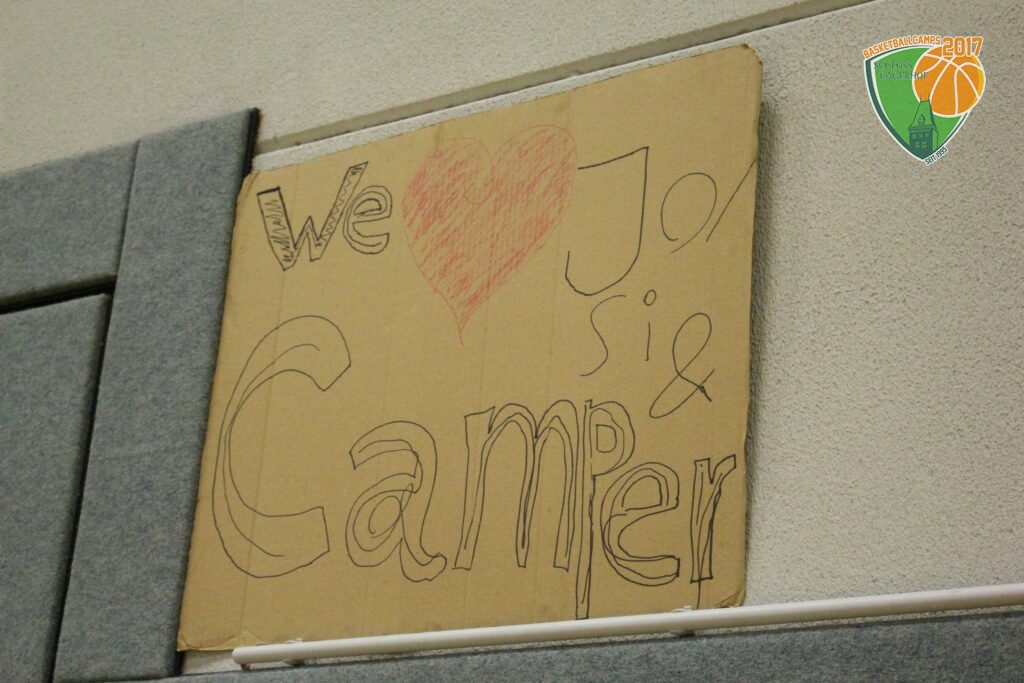 We ♥ Jo/
si &
Camper
BASKETBALLCAMPS 2017
SCHLOSS
HAGERHOF
SEIT 1995